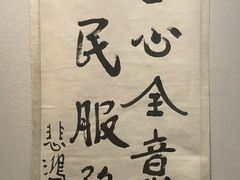 心全意
民服
悲鴻